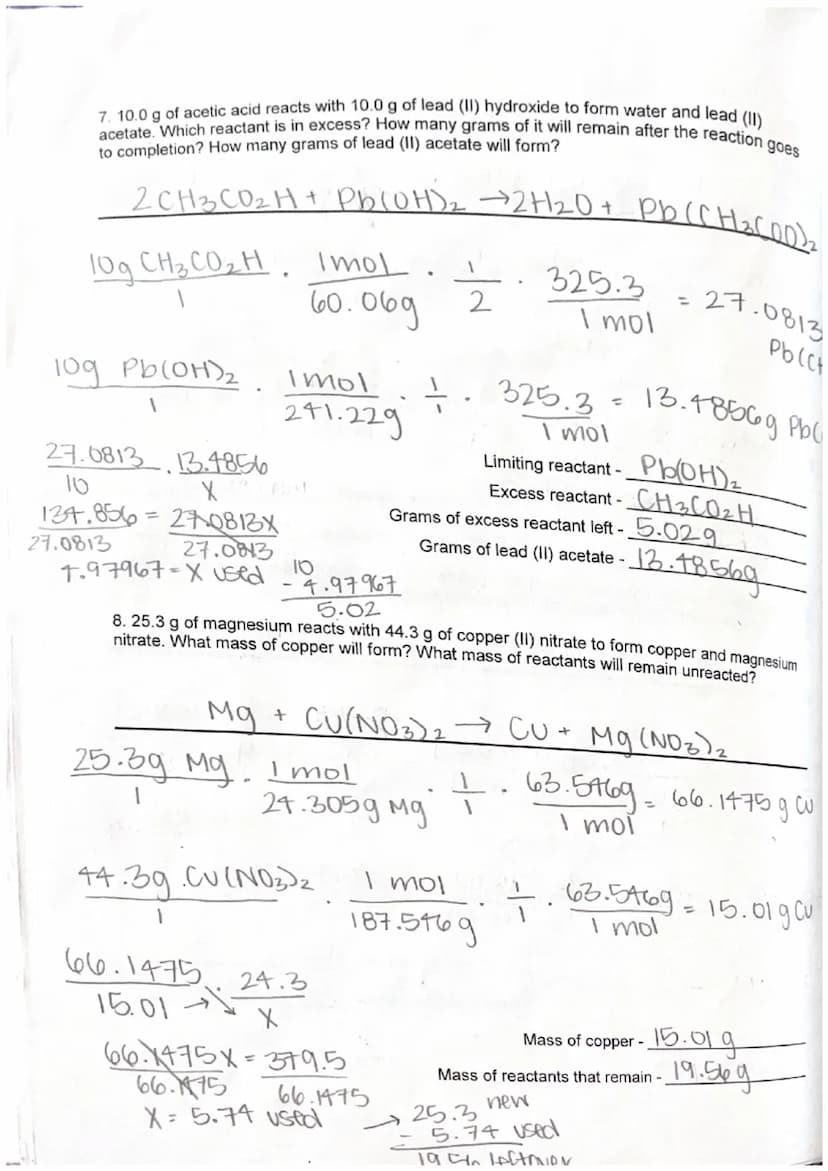 7. 10.0 g of acetic acid reacts with 10.0 g of lead (II) hydroxide to form water and lead (II)
acetate. Which reactant is in excess? How many grams of it will remain after the reaction goes
to completion? How many grams of lead (II) acetate will form?
2CH3CO2H + Pb(OH)2 → 2H2O + Pb(CH3COO)2
10g CH3CO2H / 1 · 1 mol / 60.06g · 1 / 2 · 325.3 / 1 mol = 27.0813
Pb(CH
10g Pb(OH)2 / 1 · 1 mol / 241.22g · 1 / 1 · 325.3 / 1 mol = 13.4856g Pb(
27.0813 / 10 · 13.4856 / X
134.856 = 27.0813X
27.0813 27.0813
4.97967 = X used
10
- 4.97967
5.02
Limiting reactant - Pb(OH)2
Excess reactant - CH3CO2H
Grams of excess reactant left - 5.02g
Grams of lead (II) acetate - 13.4856g
8. 25.3 g of magnesium reacts with 44.3 g of copper (II) nitrate to form copper and magnesium
nitrate. What mass of copper will form? What mass of reactants will remain unreacted?
Mg + Cu(NO3)2 → Cu + Mg(NO3)2
25.3g Mg / 1 · 1 mol / 24.305g Mg · 1 / 1 · 63.546g / 1 mol = 66.1475 g Cu
44.3g Cu(NO3)2 / 1 · 1 mol / 187.546g · 1 / 1 · 63.546g / 1 mol = 15.01g Cu
66.1475 / 15.01 → 24.3 / X
66.1475X = 379.5
66.1475 66.1475
X = 5.74 used
Mass of copper - 15.01 g
Mass of reactants that remain - 19.56g
→ 25.3 new
- 5.74 used
19.56 leftover